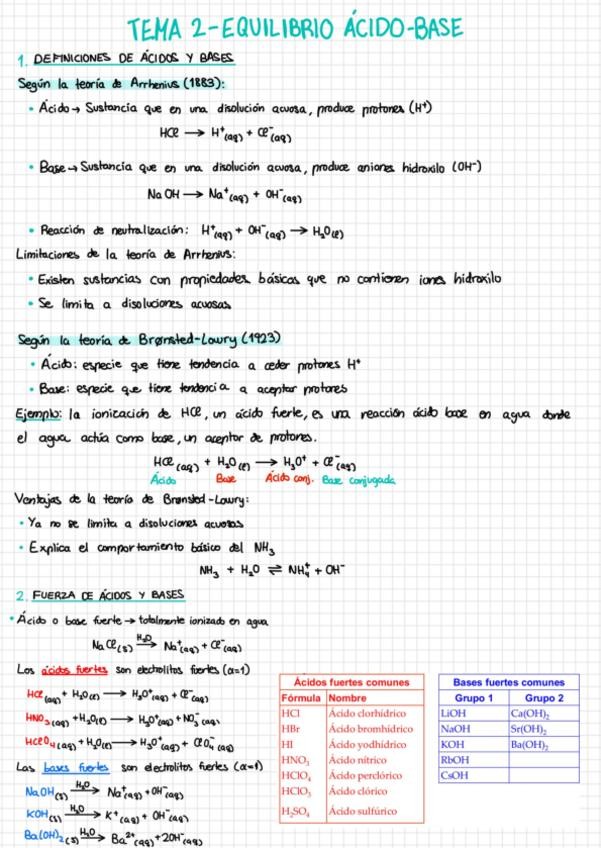 TEMA 2-EQUILIBRIO ÁCIDO-BASE
1. DEFINICIONES DE ÁCIDOS Y BASES
Según la teoría de Arrhenius (1883):
• Ácido → Sustancia que en una disolución acuosa, produce protones (H⁺)
HCl → H⁺(aq) + Cl⁻(aq)
• Base → Sustancia que en una disolución acuosa, produce aniones hidroxilo (OH⁻)
NaOH → Na⁺(aq) + OH⁻(aq)
• Reacción de neutralización: H⁺(aq) + OH⁻(aq) → H₂O(l)
Limitaciones de la teoría de Arrhenius:
• Existen sustancias con propiedades básicas que no contienen iones hidroxilo
• Se limita a disoluciones acuosas
Según la teoría de Brønsted-Lowry (1923)
• Ácido: especie que tiene tendencia a ceder protones H⁺
• Base: especie que tiene tendencia a aceptar protones
Ejemplo: la ionización de HCl, un ácido fuerte, es una reacción ácido base en agua donde
el agua actúa como base, un aceptor de protones.
HCl(aq) + H₂O(l) → H₃O⁺ + Cl⁻(aq)
Ácido Base Ácido conj. Base conjugada
Ventajas de la teoría de Brønsted-Lowry:
• Ya no se limita a disoluciones acuosas
• Explica el comportamiento básico del NH₃
NH₃ + H₂O ⇌ NH₄⁺ + OH⁻
2. FUERZA DE ÁCIDOS Y BASES
• Ácido o base fuerte → totalmente ionizado en agua
NaCl(s) H₂O→ Na⁺(aq) + Cl⁻(aq)
Los ácidos fuertes son electrolitos fuertes (α=1)
HCl(aq) + H₂O(l) → H₃O⁺(aq) + Cl⁻(aq)
HNO₃(aq) + H₂O(l) → H₃O⁺(aq) + NO₃⁻(aq)
HClO₄(aq) + H₂O(l) → H₃O⁺(aq) + ClO₄⁻(aq)
Las bases fuertes son electrolitos fuertes (α=1)
NaOH(s) H₂O→ Na⁺(aq) + OH⁻(aq)
KOH(s) H₂O→ K⁺(aq) + OH⁻(aq)
Ba(OH)₂(s) H₂O→ Ba²⁺(aq) + 2OH⁻(aq)
Ácidos fuertes comunes
Fórmula Nombre
HCl Ácido clorhídrico
HBr Ácido bromhídrico
HI Ácido yodhídrico
HNO₃ Ácido nítrico
HClO₄ Ácido perclórico
HClO₃ Ácido clórico
H₂SO₄ Ácido sulfúrico
Bases fuertes comunes
Grupo 1 Grupo 2
LiOH Ca(OH)₂
NaOH Sr(OH)₂
KOH Ba(OH)₂
RbOH
CsOH